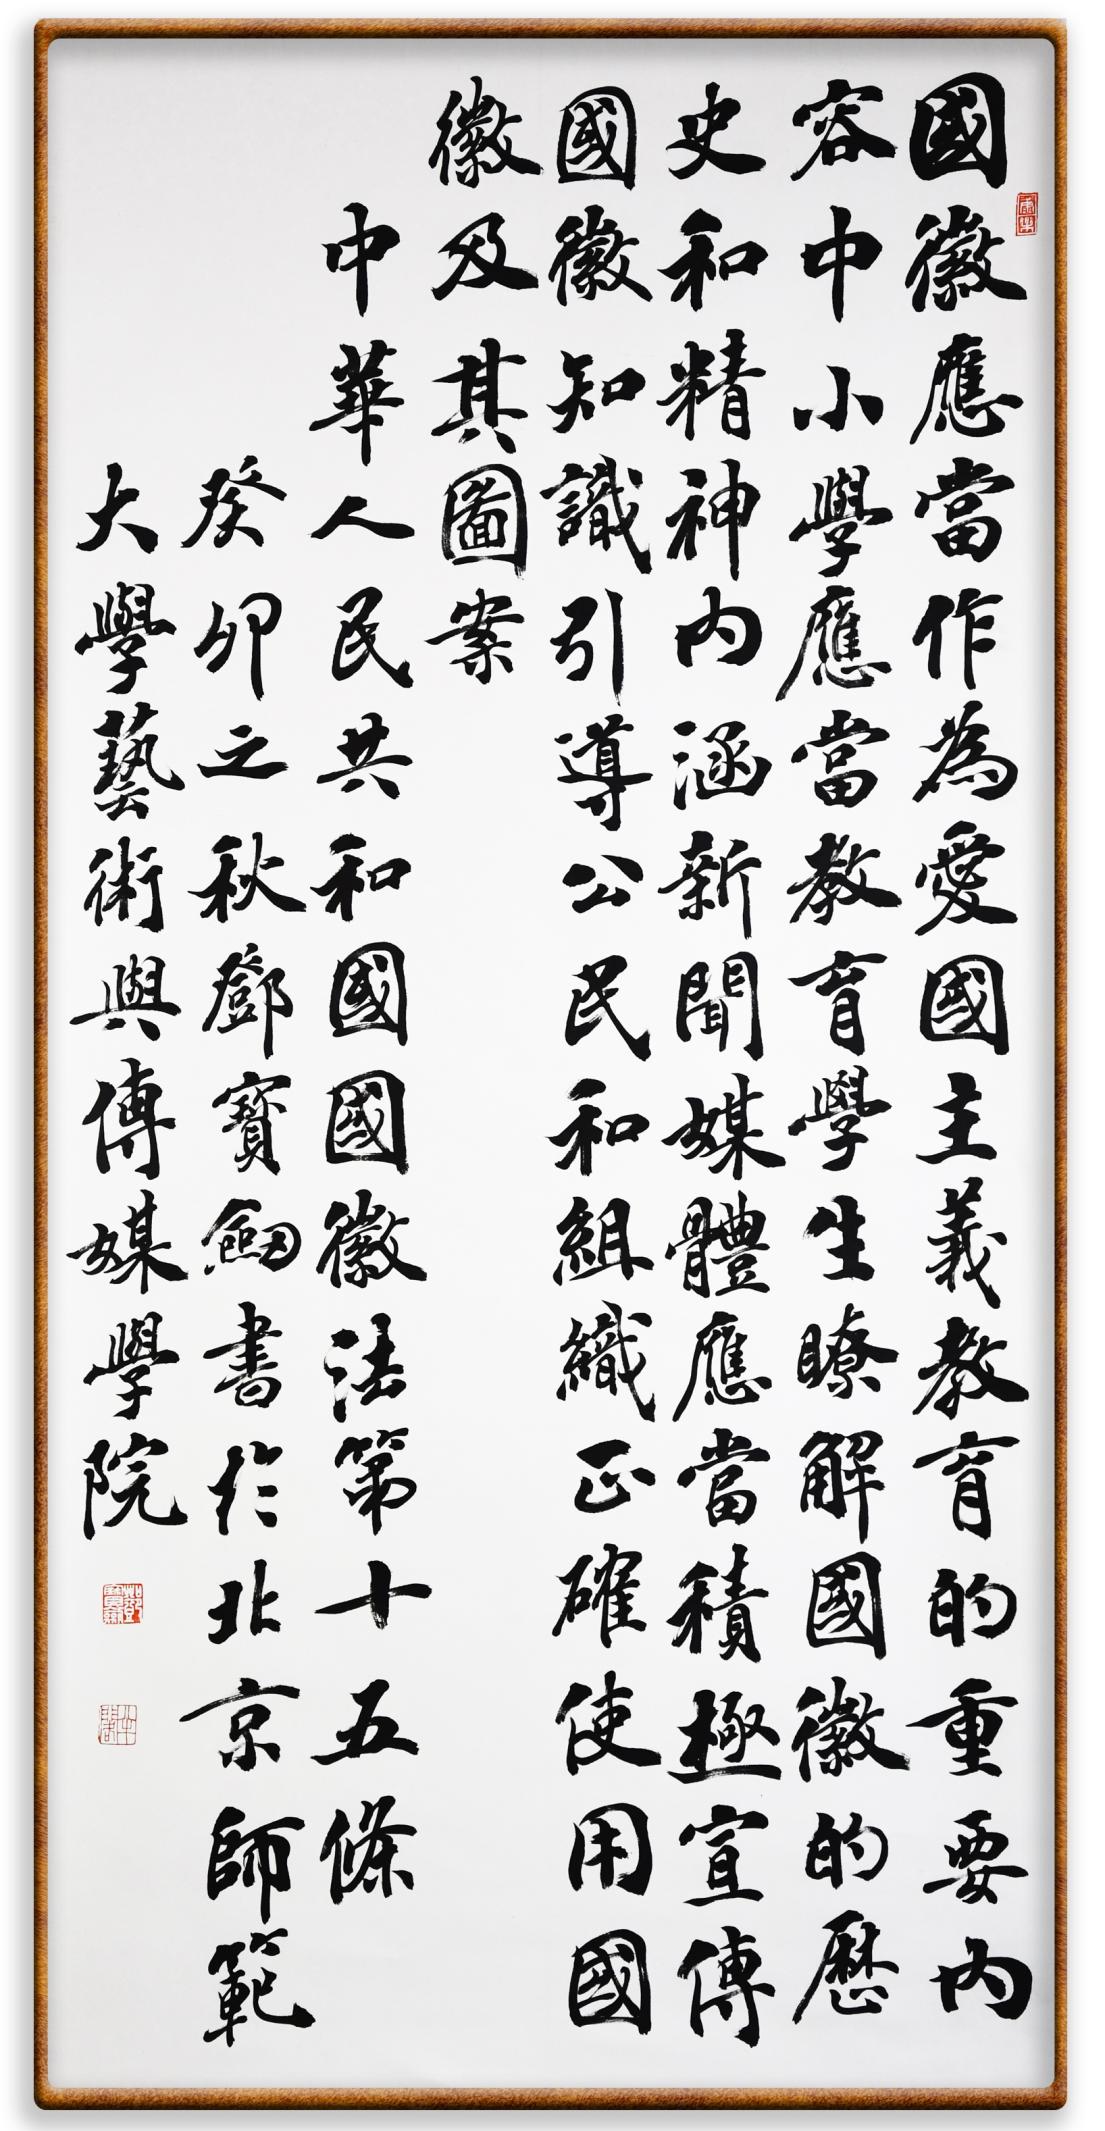 國徽應當作為愛國主義教育的重要内
容中小學應當教育學生瞭解國徽的歷
史和精神内涵新聞媒體應當積極宣傳
國徽知識引導公民和組織正確使用國
徽及其圖案
中華人民共和國國徽法第十五條
癸卯之秋鄧寶劒書於北京師範
大學藝術與傳媒學院